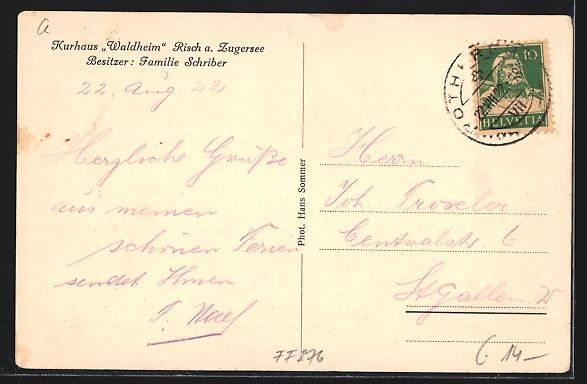 a
Kurhaus „Waldheim“ Risch a. Zugersee
Besitzer: Familie Schriber
22. Aug. 22
Herzliche Grüße
aus meinen
schönen Ferien
sendet Ihnen
Phot. Hans Sommer
10
HELVETIA
22.VIII.22
Herrn
Joh. Troxler
Centralstr. 6
St Gallen W
FF276
14 —